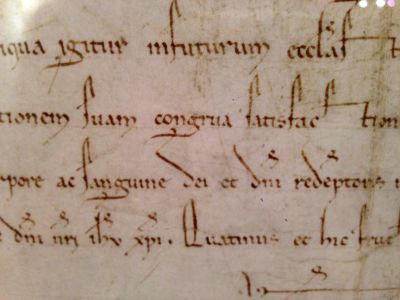 iqua igitur infuturum eccl̃aſt
tionem ſuam congrua ſatisfact tion
rpore ac ſanguine dei et dñi redẽptoris
dñi nr̃i ihũ xp̃i. Quatinus et hic fruc